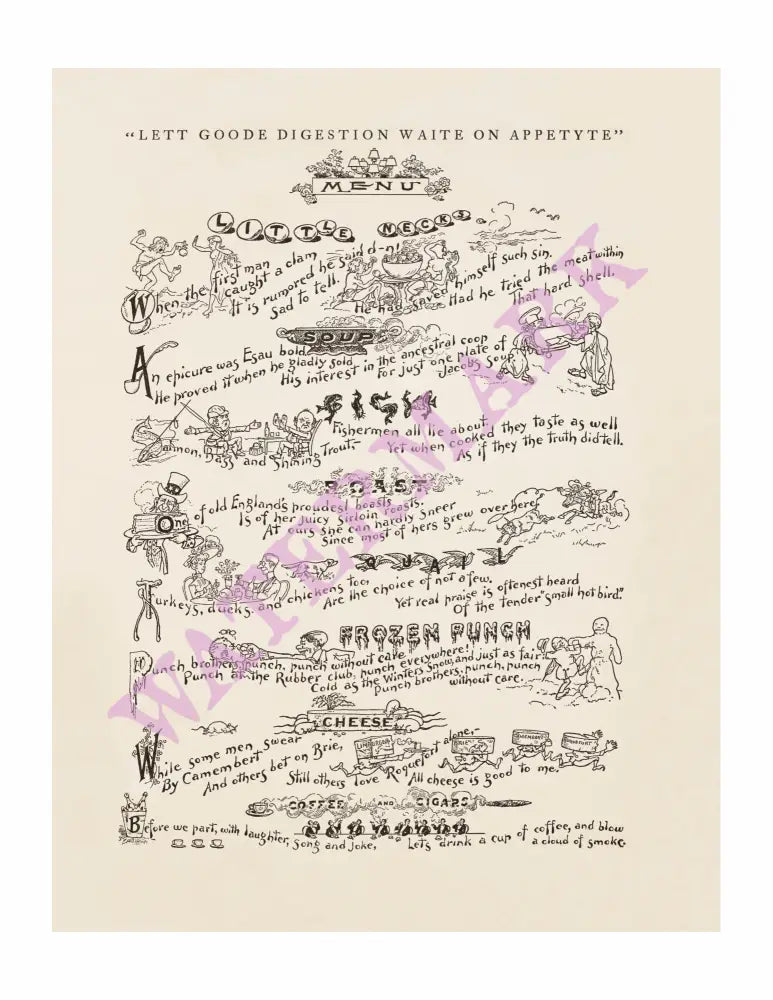 “LETT GOODE DIGESTION WAITE ON APPETYTE”
MENU
LITTLE NECKS
When the first man
caught a clam
It is rumored he said d-n!
Sad to tell.
He had saved himself such sin.
Had he tried the meat within
That hard shell.
SOUP
An epicure was Esau bold
He proved it when he gladly sold
His interest in the ancestral coop
For just one plate of
Jacobs soup.
FISH
Salmon, Bass and Shining Trout-
Fishermen all lie about.
Yet when cooked they taste as well
As if they the truth did tell.
ROAST
One of old England's proudest boasts
Is of her juicy Sirloin roasts.
At ours she can hardly sneer
Since most of hers grew over here.
QUAIL
Turkeys, ducks and chickens too,
Are the choice of not a few.
Yet real praise is oftenest heard
Of the tender "small hot bird."
FROZEN PUNCH
Punch brothers, punch, punch without care
Punch at the Rubber club, punch everywhere!
Cold as the Winters snow, and just as fair
Punch brothers, punch, punch
without care.
CHEESE
While some men swear
By Camembert
And others bet on Brie,
Still others love Roquefort alone,-
All cheese is good to me.
LIMBURGER
BRIE
CAMEMBERT
ROQUEFORT
COFFEE AND CIGARS
Before we part, with laughter, song and joke,
Lets drink a cup of coffee, and blow
a cloud of smoke.
WATERMARK